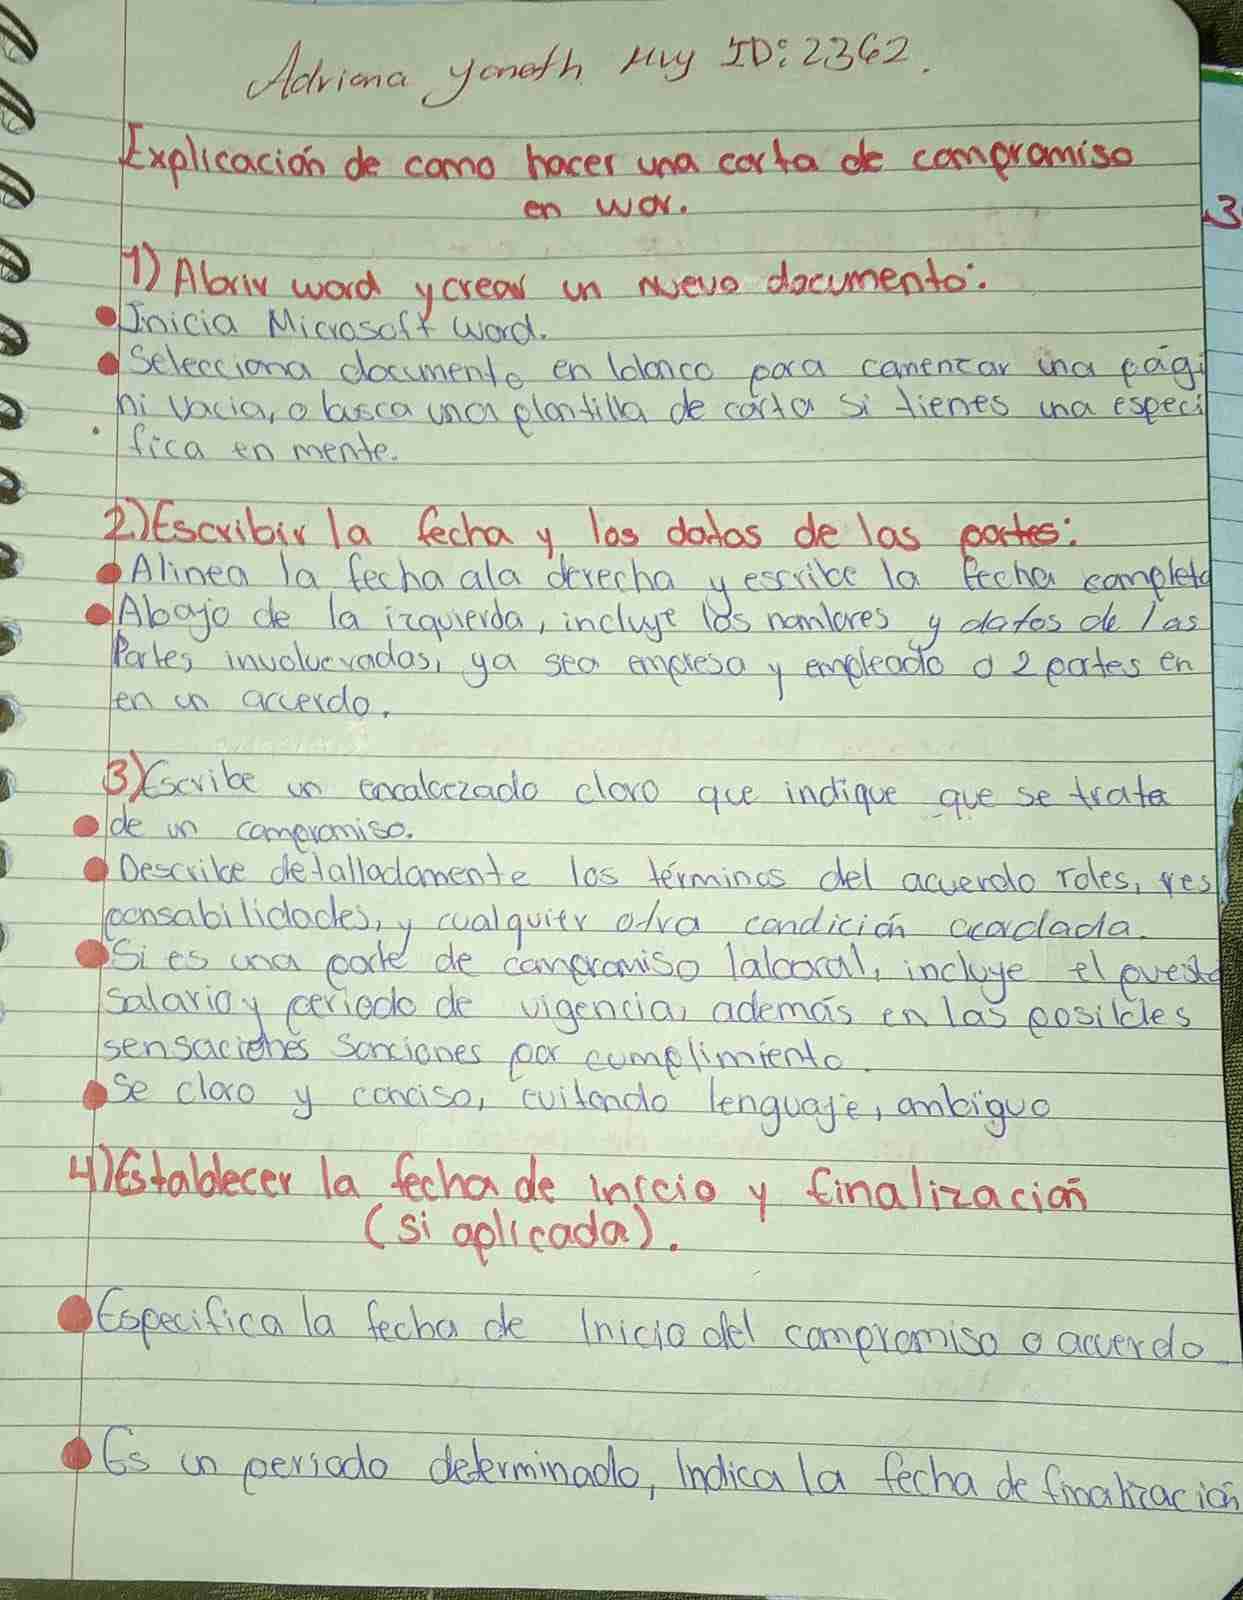 Adriana Yaneth Muy ID: 2362.
Explicación de como hacer una carta de compromiso
en wor.
3
1) Abrir word y crear un nuevo documento:
Inicia Microsoft word.
Selecciona documento en blanco para comenzar una pági
ni vacia, o busca una plantilla de carta si tienes una especi
fica en mente.
2) Escribir la fecha y los datos de las partes:
Alinea la fecha ala derecha y escribe la fecha completa
Abajo de la izquierda, incluye los nombres y datos de las
Partes involucradas, ya sea empresa y empleado o 2 partes en
en un acuerdo.
3) Escribe un encabezado claro que indique que se trata
de un compromiso.
Describe detalladamente los términos del acuerdo roles, res
ponsabilidades, y cualquier otra condición acordada.
Si es una parte de compromiso laboral, incluye el puesto
salario y periodo de vigencia, además en las posibles
sensaciones sanciones por cumplimiento.
Se claro y conciso, evitando lenguaje, ambiguo
4) Establecer la fecha de inicio y finalización
(si aplicada).
Especifica la fecha de Inicio del compromiso o acuerdo
Es un periodo determinado, Indica la fecha de finalización